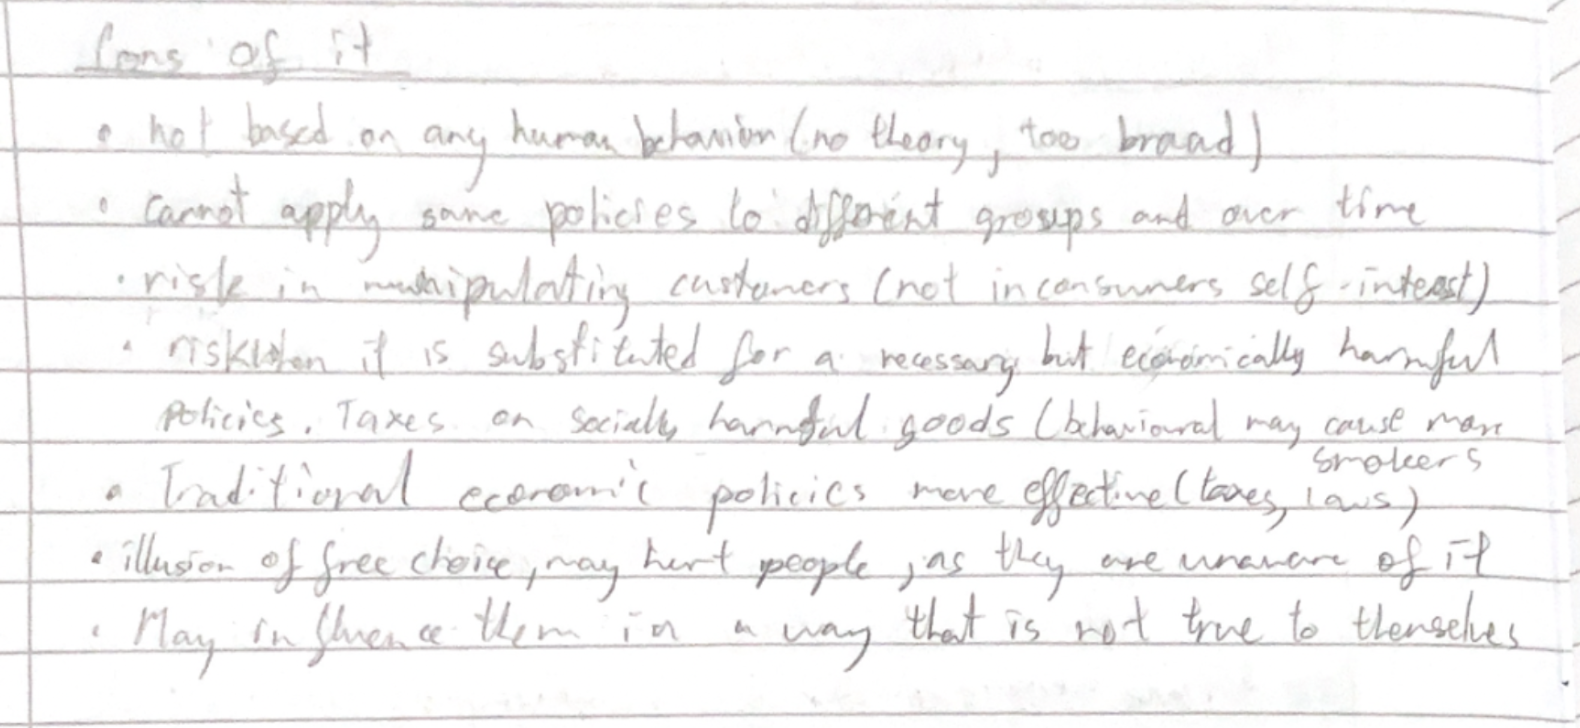 Cons of it
• not based on any human behavior (no theory, too broad)
• cannot apply same policies to different groups and over time
• risk in manipulating customers (not in consumers self-interest)
• risk when it is substituted for a necessary but economically harmful
policies. Taxes on socially harmful goods (behavioural may cause more
smokers
• Traditional economic policies more effective (taxes, laws)
• illusion of free choice, may hurt people, as they are unaware of it
• May influence them in a way that is not true to themselves